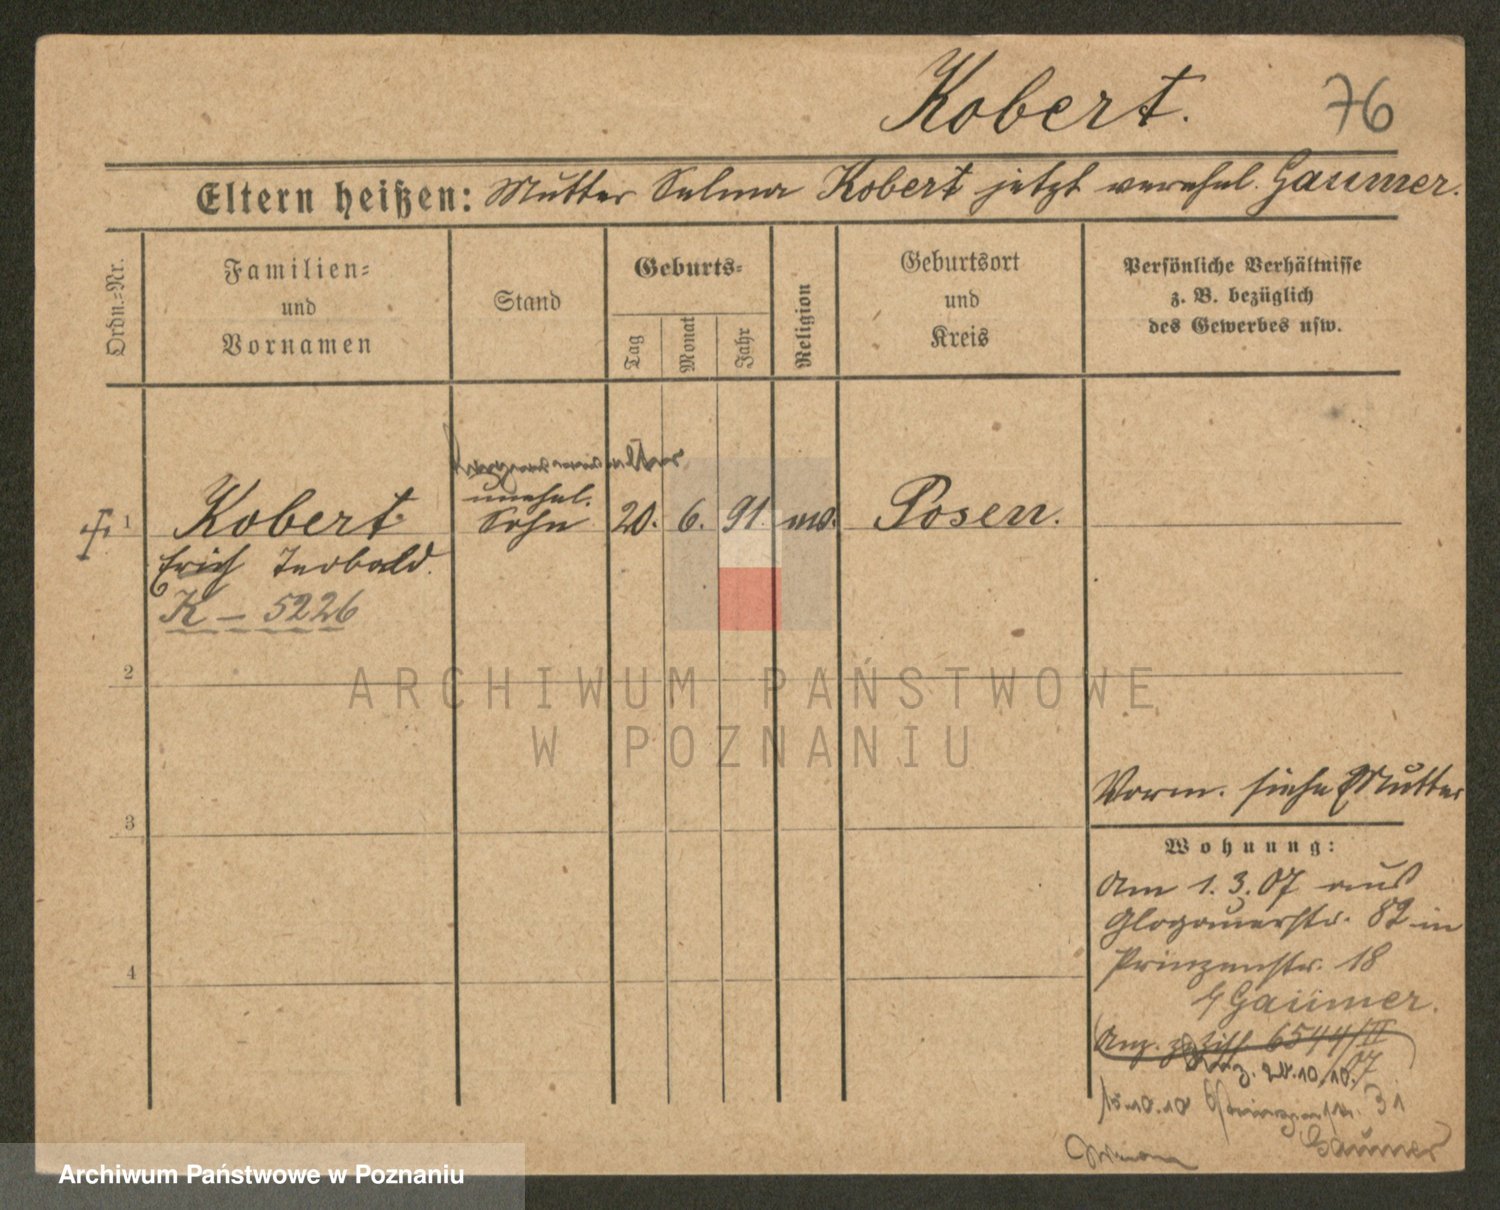 Kobert.
76
Eltern heißen: Mutter Selma Kobert jetzt verehel. Gaumer.
Ordn.=Nr.
Familien=
und
Vornamen
Stand
Geburts=
Tag
Monat
Jahr
Religion
Geburtsort
und
Kreis
Persönliche Verhältnisse
z. B. bezüglich
des Gewerbes usw.
unehel.
1 Kobert Sohn 20. 6. 91. Posen.
Erich
K - 5226
2
ARCHIWUM PAŃSTWOWE
W POZNANIU
Vorm. siehe Mutter
3
Wohnung:
Am 1.3.07 aus
Glogauerstr. 82 in
Prinzenstr. 18
4
b/Gaumer.
6544/II
07
10.10.
15.10.10 31
Gaumer
Archiwum Państwowe w Poznaniu